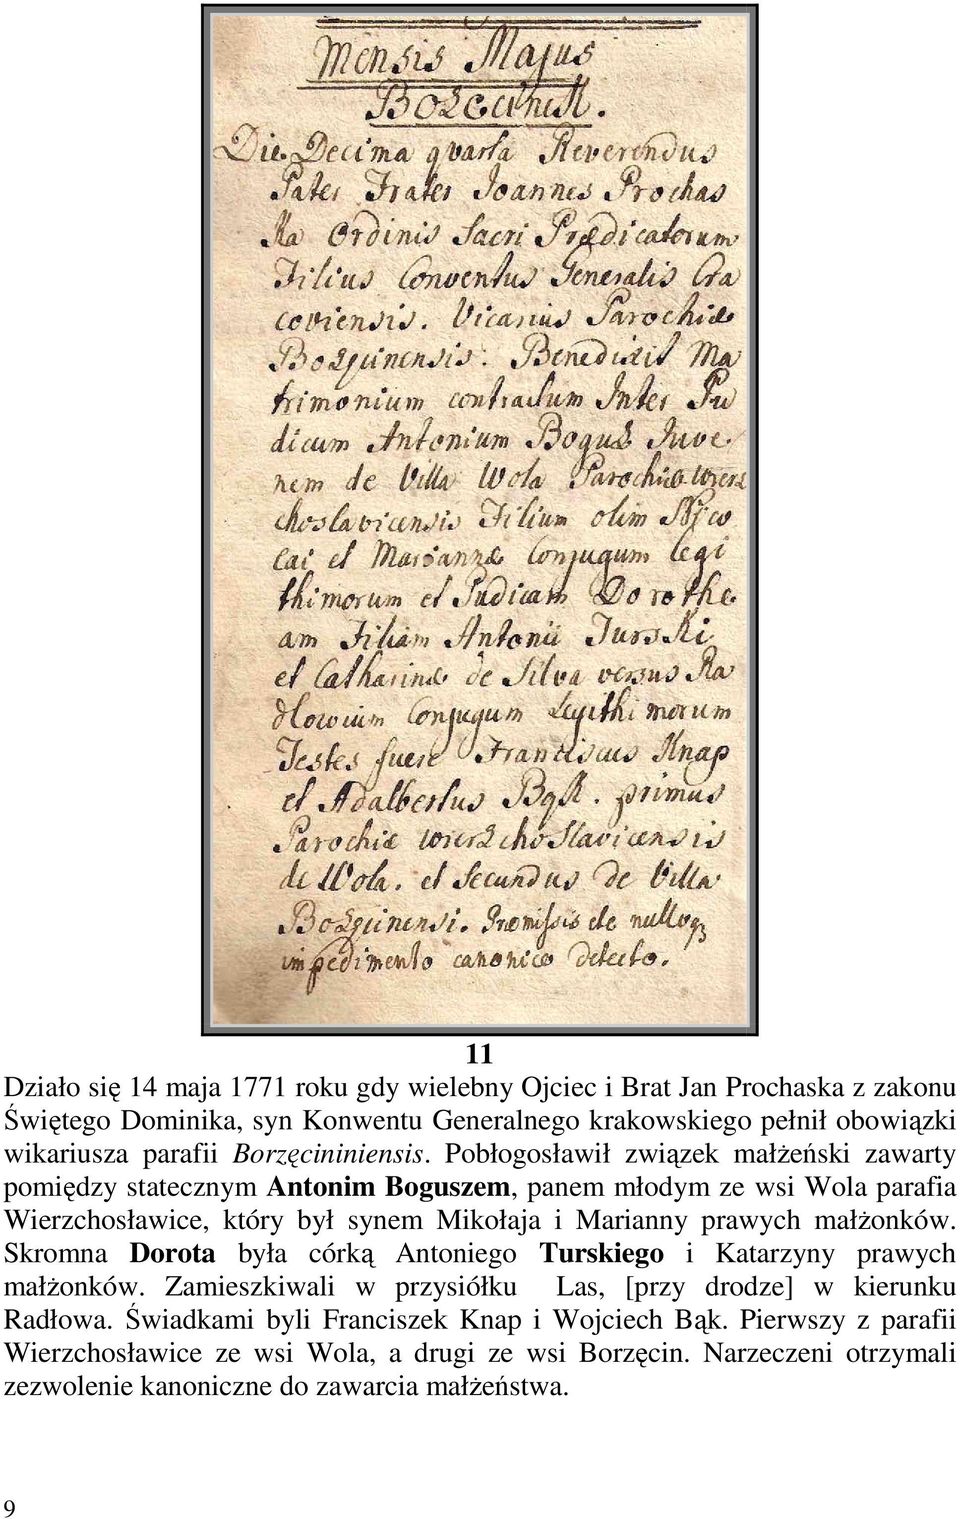 Mensis Majus
Bozecinek.
Die Decima quarta Reverendus
Pater Frater Joannes Prochas
ka Ordinis Sacri Prædicatorum
Filius Conventus Generalis Cra
coviensis. Vicarius Parochiæ
Bozęcinensis. Benedixit Ma
trimonium contractum Inter Pu
dicum Antonium Bogusz Juve
nem de Villa Wola Parochiæ Wierz
choslavicensis Filium olim Nico
lai et Mariannæ Conjugum legi
thimorum et Pudicam Dorothe
am Filiam Antonii Turski
et Catharinæ de Silva versus Ra
dlovium Conjugum Legithimorum
Testes fuere Franciscus Knap
et Adalbertus Bąk. primus
Parochiæ Wierzchoslavicensis
de Wola. et Secundus de Villa
Præmissis de nulloq
impedimento canonico detecto.
11
Działo się 14 maja 1771 roku gdy wielebny Ojciec i Brat Jan Prochaska z zakonu
Świętego Dominika, syn Konwentu Generalnego krakowskiego pełnił obowiązki
wikariusza parafii Borzęcininiensis. Pobłogosławił związek małżeński zawarty
pomiędzy statecznym Antonim Boguszem, panem młodym ze wsi Wola parafia
Wierzchosławice, który był synem Mikołaja i Marianny prawych małżonków.
Skromna Dorota była córką Antoniego Turskiego i Katarzyny prawych
małżonków. Zamieszkiwali w przysiółku Las, [przy drodze] w kierunku
Radłowa. Świadkami byli Franciszek Knap i Wojciech Bąk. Pierwszy z parafii
Wierzchosławice ze wsi Wola, a drugi ze wsi Borzęcin. Narzeczeni otrzymali
zezwolenie kanoniczne do zawarcia małżeństwa.
9